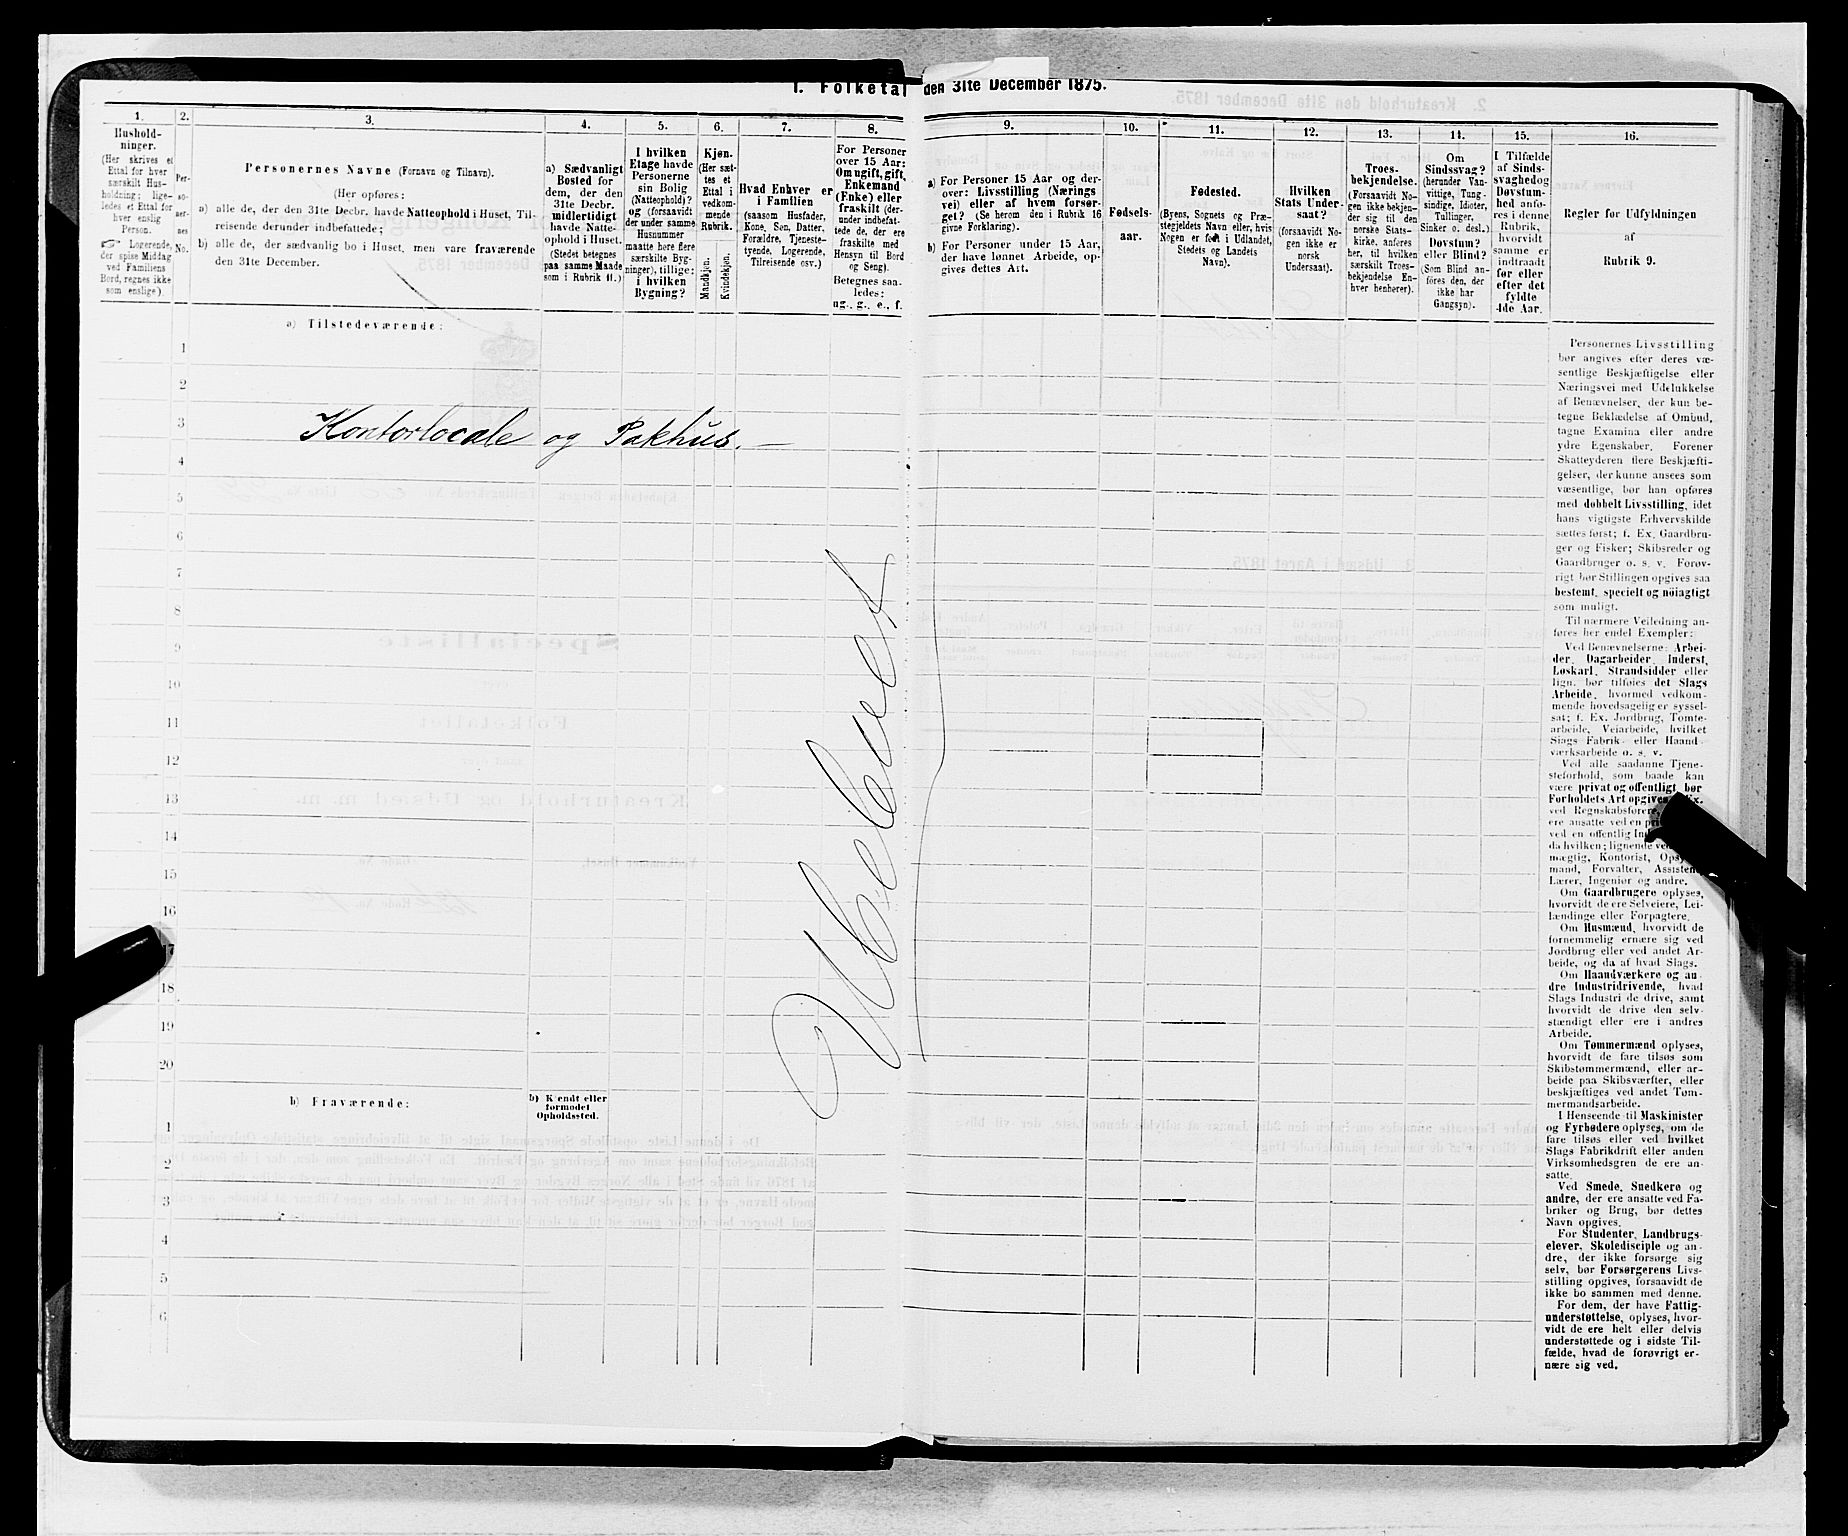 1. Folketal den 31te December 1875.
1.
2.
3.
4.
5.
6.
7.
8.
9.
10.
11.
12.
13.
14.
15.
16.
Hushold-
ninger.
(Her skrives et
Ettal for hver
særskilt Hus-
holdning; lige-
ledes et Ettal for
hver enslig
Person.
☞ Logerende,
der spise Middag
ved Familiens
Bord, regnes ikke
som enslige).
Per-
so-
ner-
nes
No.
Personernes Navne (Fornavn og Tilnavn).
(Her opføres:
a) alle de, der den 31te Decbr. havde Natteophold i Huset, Til-
reisende derunder indbefattede;
b) alle de, der sædvanlig bo i Huset, men vare fraværende
den 31te December.
a) Sædvanligt
Bosted for
dem, der den
31te Decbr.
midlertidigt
havde Natte-
ophold i Huset.
(Stedet betegnes
paa samme Maade
som i Rubrik 11.)
I hvilken
Etage havde
Personerne
sin Bolig
(Natteophold)?
og (forsaavidt
der under samme
Husnummer
maatte høre flere
særskilte Byg-
ninger), tillige:
i hvilken
Bygning?
Kjøn.
(Her sæt-
tes et
Ettal i
vedkom-
mende
Rubrik.
Mandkjøn.
Kvindekjøn.
Hvad Enhver er
i Familien
(saasom Husfader,
Kone, Søn, Datter,
Forældre, Tjeneste-
tyende, Logerende,
Tilreisende osv.)
For Personer
over 15 Aar:
Om ugift, gift,
Enkemand
(Enke) eller
fraskilt (der-
under indbefat-
tede de, der ere
fraskilte med
Hensyn til Bord
og Seng).
Betegnes saa-
ledes:
ug., g., e., f.
a) For Personer 15 Aar og der-
over: Livsstilling (Nærings
vei) eller af hvem forsør-
get? (Se herom den i Rubrik 16
givne Forklaring).
b) For Personer under 15 Aar,
der have lønnet Arbeide, op-
gives dettes Art.
Fødsels-
aar.
Fødested.
(Byens, Sognets og Præ-
stegjeldets Navn eller, hvis
Nogen er født i Udlandet,
Stedets og Landets
Navn).
Hvilken
Stats Under-
saat?
(forsaavidt No-
gen ikke er
norsk
Undersaat).
Troes-
bekjendelse.
(Forsaavidt No-
gen ikke bekjen-
der sig til den
norske Stats-
kirke, anføres
her, til hvilken
særskilt Troes-
bekjendelse En-
hver henhører).
Om
Sindssvag?
(herunder Van-
vittige, Tung-
sindige, Idioter,
Tullinger,
Sinker o. desl.)
Døvstum?
eller Blind?
(Som Blind an-
føres den, der
ikke har
Gangsyn).
I Tilfælde
af Sinds-
svaghed og
Døvstum-
hed anfø-
res i denne
Rubrik,
hvorvidt
samme er
indtraadt
før eller
efter det
fyldte
4de Aar.
Regler for Udfyldningen
af
Rubrik 9.
a) Tilstedeværende:
1
2
3
Kontorlocale og Pakhus. —
4
5
6
7
8
9
10
11
12
13
14
15
16
17
18
19
20
Ubeboet
b) Fraværende:
b) Kjendt eller
formodet
Opholdssted.
1
2
3
4
5
6
Personernes Livsstilling
bør angives efter deres væ-
sentlige Beskjæftigelse eller
Næringsvei med Udelukkelse
af Benævnelser, der kun be-
tegne Beklædelse af Ombud,
tagne Examina eller andre
ydre Egenskaber. Forener
Skatteyderen flere Beskjæfti-
gelser, der kunne ansees som
væsentlige, bør han opføres
med dobbelt Livsstilling, idet
hans vigtigste Erhvervskilde
sættes først; f. Ex. Gaardbru-
ger og Fisker; Skibsreder og
Gaardbruger o. s. v. Forøv-
rigt bør Stillingen opgives saa
bestemt, specielt og nöiagtigt
som muligt.
Til nærmere Veiledning an-
føres her endel Exempler:
Ved Benævnelserne: Arbei-
der, Dagarbeider, Inderst,
Løskarl, Strandsidder eller
lign. bør tilføies det Slags
Arbeide, hvormed vedkom-
mende hovedsagelig er syssel-
sat; f. Ex. Jordbrug, Tomte-
arbeide, Veiarbeide, hvilket
Slags Fabrik- eller Haand-
værksarbeide o. s. v.
Ved alle saadanne Tjene-
steforhold, som baade kan
være privat og offentligt, bør
Forholdets Art opgives,
ved Regnskabsførere,
ere ansatte ved en
ved en offentlig
da hvilken; lignende ved
mægtig, Kontorist,
mand, Forvalter, Assistent,
Lærer, Ingeniør og andre.
Om Gaardbrugere oplyses,
hvorvidt de ere Selveiere, Lei-
lændinge eller Forpagtere.
Om Husmænd, hvorvidt de
fornemmelig ernære sig ved
Jordbrug eller ved andet Ar-
beide, og da af hvad Slags.
Om Haandværkere og an-
dre Industridrivende, hvad
Slags Industri de drive, samt
hvorvidt de drive den selv-
stændigt eller ere i andres
Arbeide.
Om Tømmermænd oplyses,
hvorvidt de fare tilsøs som
Skibstømmermænd, eller ar-
beide paa Skibsværfter, eller
beskjæftiges ved andet Tøm-
mermandsarbeide.
I Henseende til Maskinister
og Fyrbødere oplyses, om de
fare tilsøs eller ved hvilket
Slags Fabrikdrift eller anden
Virksomhedsgren de ere an-
satte.
Ved Smede, Snedkere og
andre, der ere ansatte ved Fa-
briker og Brug, bør dettes
Navn opgives.
For Studenter, Landbrugs-
elever, Skoledisciple og an-
dre, der ikke forsørge sig
selv, bør Forsørgerens Livs-
stilling opgives, forsaavidt de
ikke bo sammen med denne.
For dem, der have Fattig-
understøttelse, oplyses, hvor-
vidt de ere helt eller delvis
understøttede og i sidste Til-
fælde, hvad de forøvrigt er-
nære sig ved.